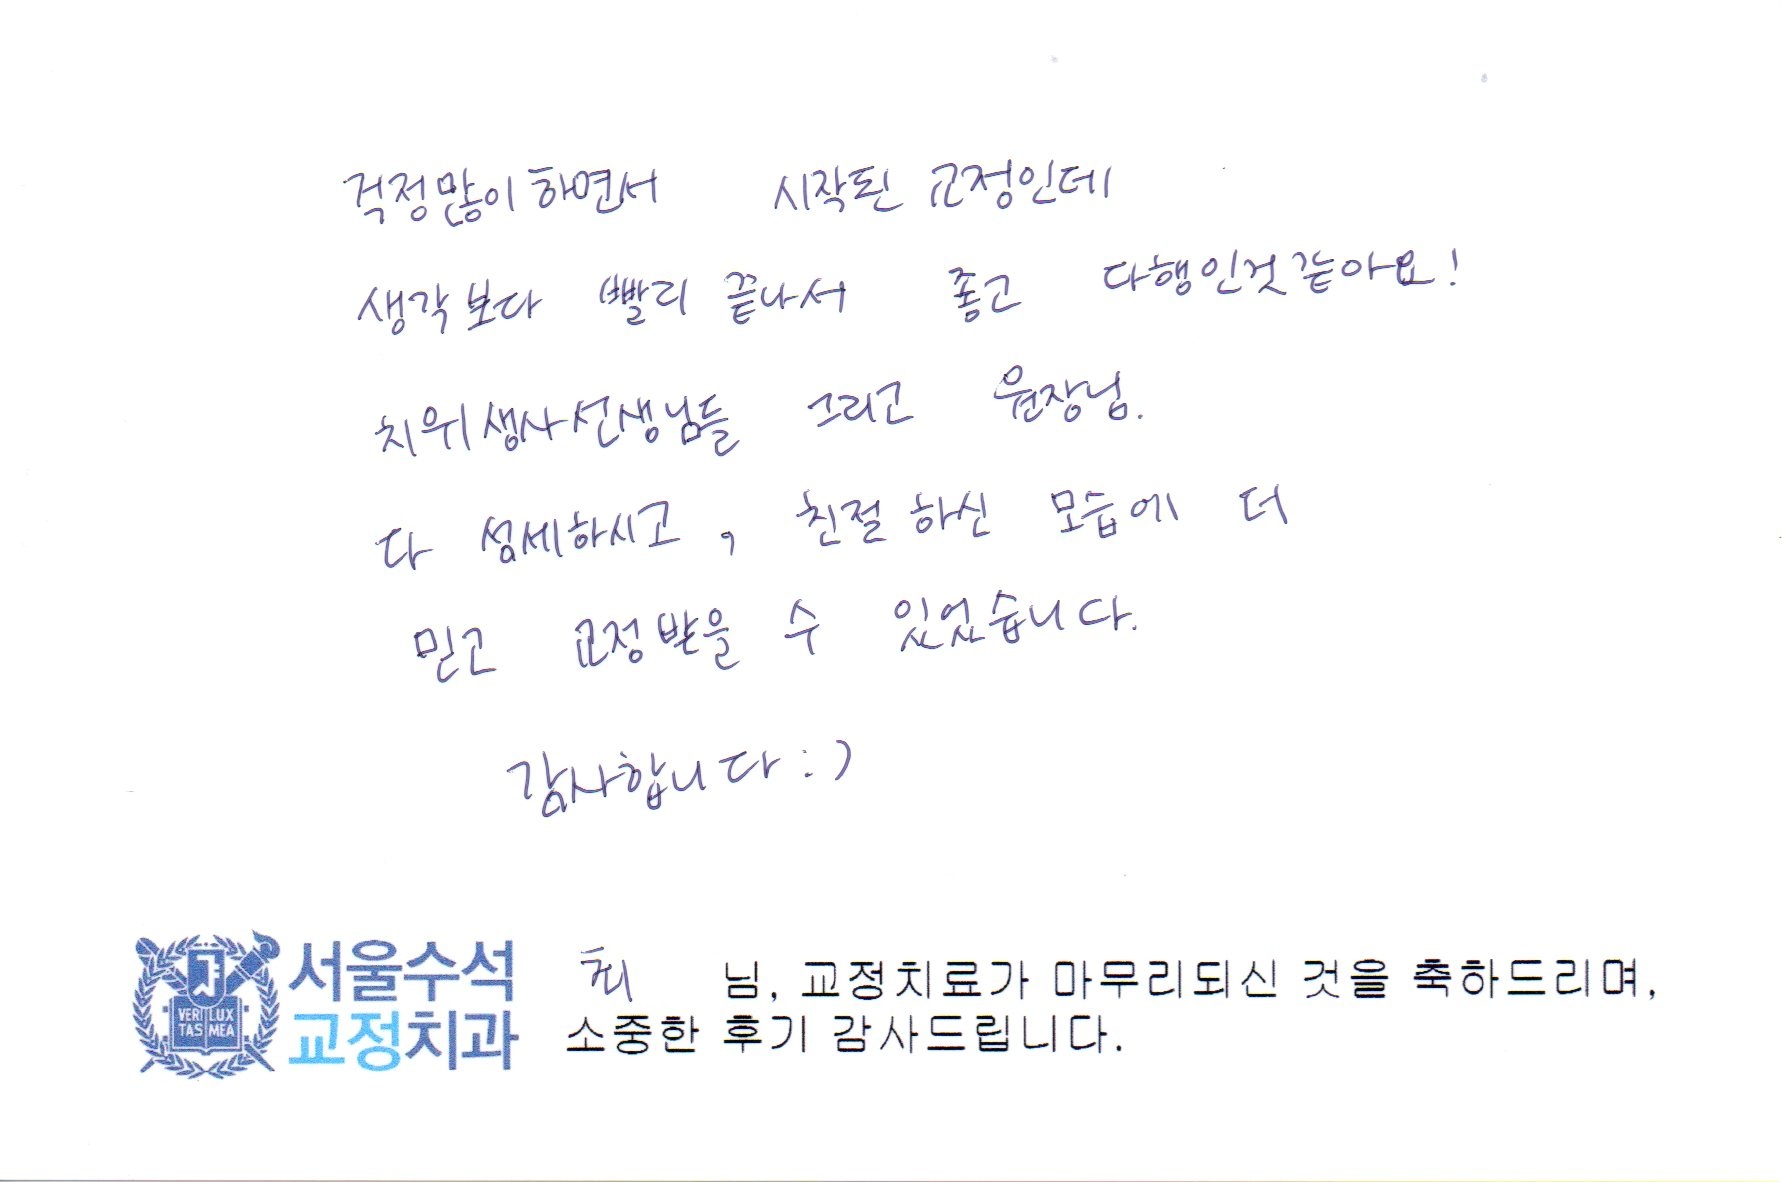 걱정많이하면서 시작된 교정인데
생각보다 빨리 끝나서 좋고 다행인것같아요!
치위생사선생님들 그리고 원장님.
다 섬세하시고, 친절하신 모습에 더
믿고 교정받을 수 있었습니다.
감사합니다:)
VERI LUX
TAS MEA
서울수석
교정치과
최 님, 교정치료가 마무리되신 것을 축하드리며,
소중한 후기 감사드립니다.